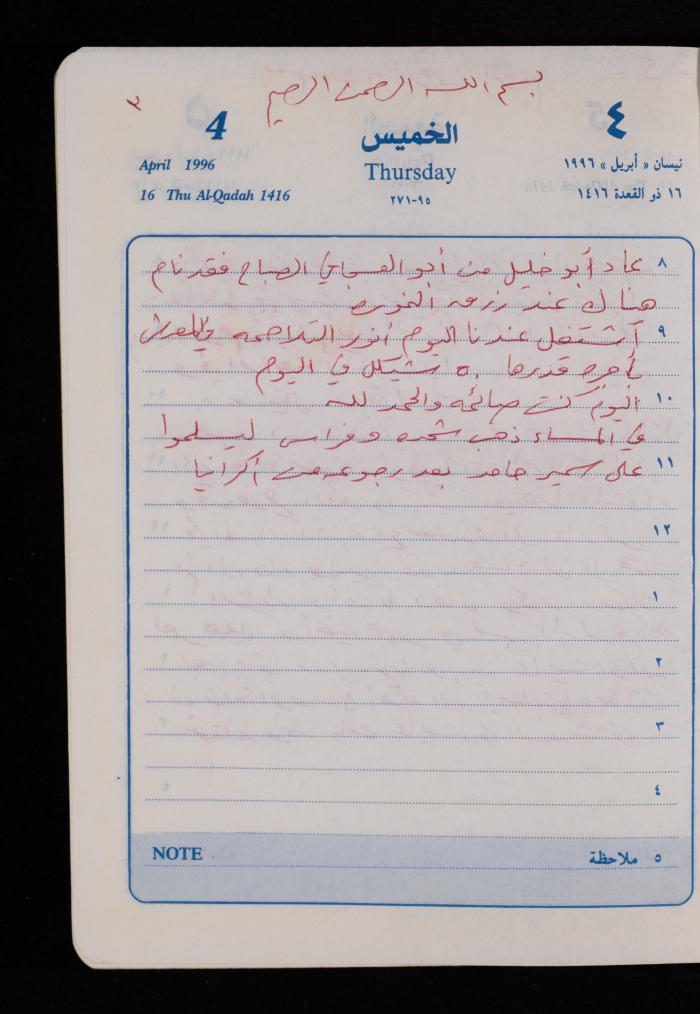 بسم الله الرحمن الرحيم
٣
4
الخميس
٤
April 1996
Thursday
نيسان « أبريل » ١٩٩٦
16 Thu Al-Qadah 1416
٢٧١-٩٥
١٦ ذو القعدة ١٤١٦
٨ عاد أبو خليل من أبو العجاج الصباح فقد نام
هناك عند زرعه
٩ اشتغل عندنا اليوم أنور التلاحمه في المعرش
بأجره قدرها ٥٠ شيكل في اليوم
١٠ اليوم كنت صائمه والحمد لله
في المساء ذهب شحده وفراس ليسلموا
١١ على سمير حامد بعد رجوعه من أكرانيا
١٢
١
٢
٣
٤
NOTE
٥ ملاحظة